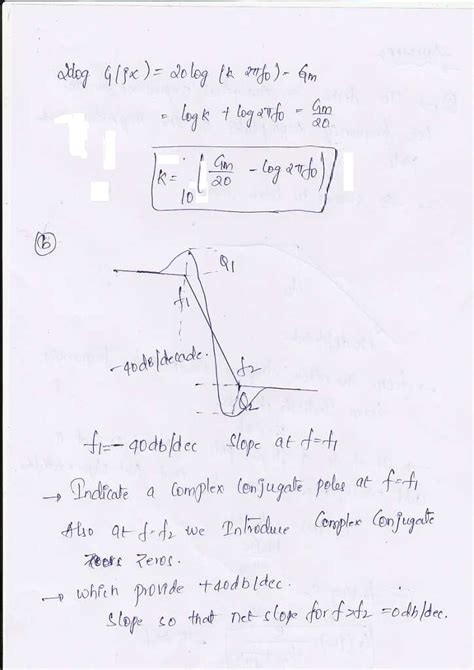 20log G(jx) = 20log (k 2πf0) = Gm
= log k + log 2πf0 = Gm/20
k = 10 (Gm/20 - log 2πf0)
(b)
Q1
f1
-40db/decade.
f2
Q2
f1=-40db/dec Slope at f=f1
→ Indicate a complex conjugate poles at f=f1
Also at f=f2 we Introduce Complex Conjugate
Zeros.
→ which provide +40db/dec.
Slope so that net slope for f>f2 =0db/dec.